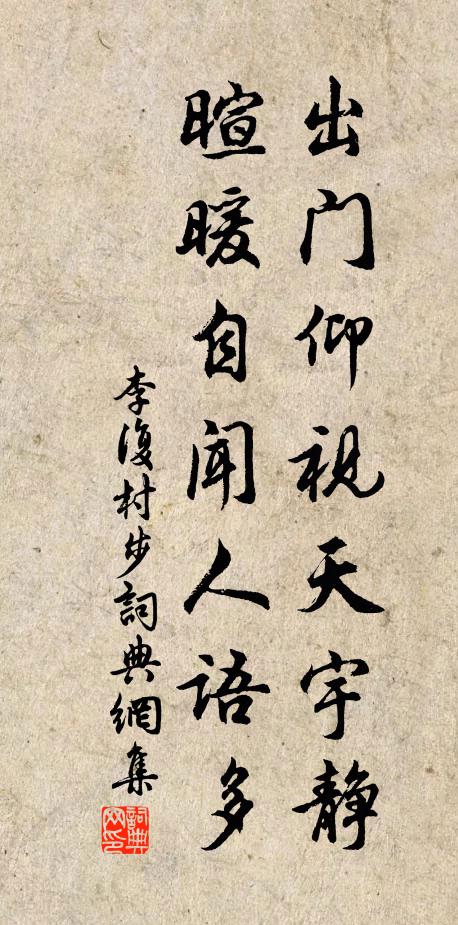 出门仰視天宇静
暄暖自闻人语多
李復村步詞典網集
詞典网印